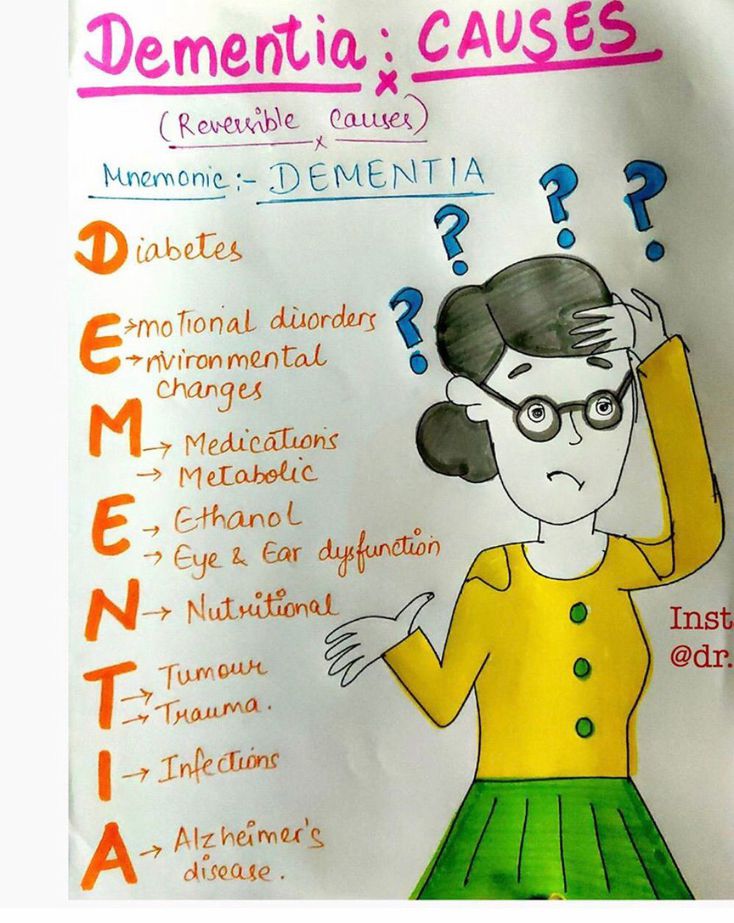 Dementia : CAUSES
(Reversible Causes)
Mnemonic :- DEMENTIA
Diabetes
E → motional disorders
→ nvironmental
changes
M → Medications
→ Metabolic
E → Ethanol
→ Eye & Ear dysfunction
N → Nutritional
T → Tumour
→ Trauma.
I → Infections
A → Alzheimer's
disease.
? ? ? ?
Inst
@dr.